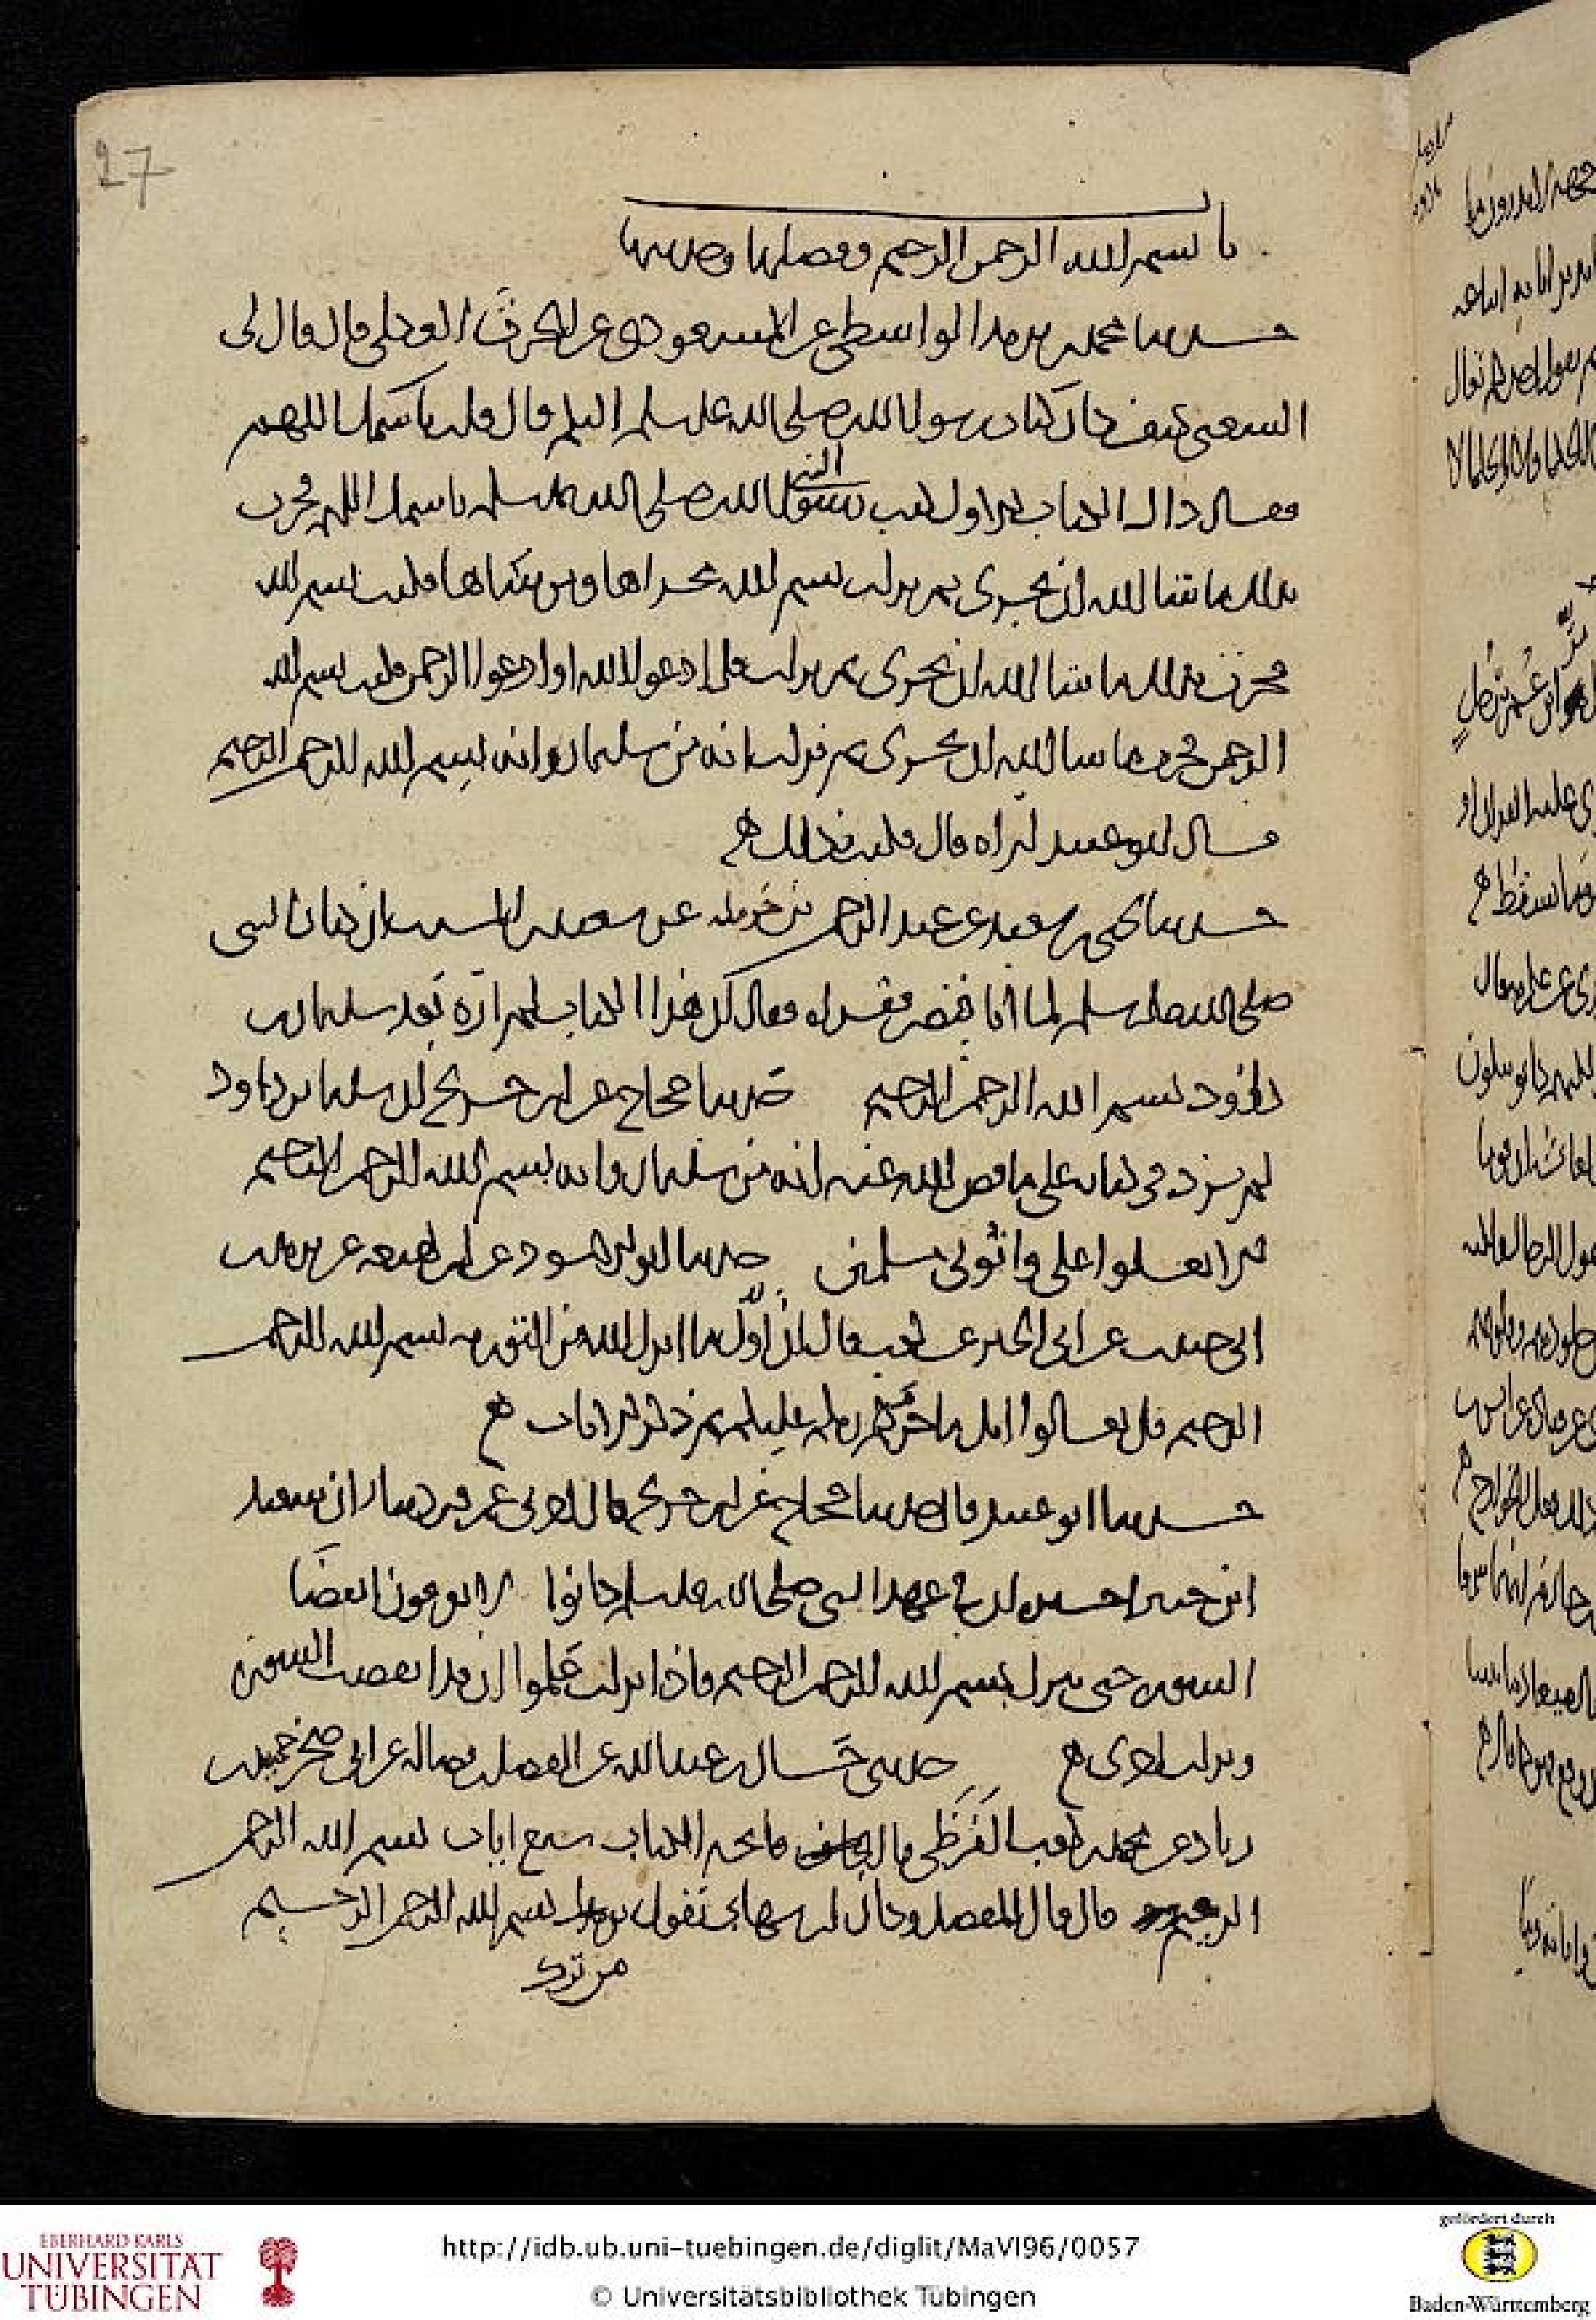 27
باب بسم الله الرحمن الرحيم وفضلها وحديثها
حدثنا محمد بن يزيد الواسطي عن المسعودي عن الحرث العكلي قال قال لي
الشعبي كيف كان كتاب رسول الله صلى الله عليه وسلم اليكم قال قلت باسمك اللهم
فقال ذاك الكتاب الاول كتب النبي صلى الله عليه وسلم باسمك اللهم فجرت
بذلك ما شا الله ان تجري ثم نزلت بسم الله مجراها ومرساها فكتب بسم الله
فجرت بذلك ما شا الله ان تجري ثم نزلت قل ادعوا الله او ادعوا الرحمن فكتب بسم الله
الرحمن فجرت ما شا الله ان تجري ثم نزلت انه من سليمان وانه بسم الله الرحمن الرحيم
قال ابو عبيد اراه قال فكتب بذلك
حدثنا يحيى بن سعيد عن عبد الرحمن بن حرملة عن سعيد بن المسيب ان كتاب النبي
صلى الله عليه وسلم لما اتا قيصر فقراه فقال ان هذا الكتاب لم اره بعد سليمان بن
داوود بسم الله الرحمن الرحيم حدثنا حجاج عن ابن جريج ان سليمان بن داود
لم يزد في كتابه على ما قص الله عنه انه من سليمان وانه بسم الله الرحمن الرحيم
الا تعلوا علي واتوني مسلمين حدثنا ابو الاسود عن ابن لهيعة عن يزيد بن
ابي حبيب عن ابي الخير عن كعب قال ان اول ما انزل الله من التورية بسم الله الرحمن
الرحيم قل تعالوا اتل ما حرم ربكم عليكم ثم ذكر الايات
حدثنا ابو عبيد قال حدثنا حجاج عن ابن جريج قال اخبرني عمرو بن دينار ان سعيد
ابن جبير اخبره ان في عهد النبي صلى الله عليه وسلم كانوا لا يعرفون انقضا
السورة حتى تنزل بسم الله الرحمن الرحيم فاذا نزلت علموا ان قد انقضت السورة
ونزلت اخرى حدثني حسان بن عبد الله عن المفضل بن فضالة عن ابي صخر حميد بن
زياد عن محمد بن كعب القرظي قال فاتحة الكتاب سبع ايات بسم الله الرحمن
الرحيم قال قال المفضل وكان ابن شهاب يقول بسم الله الرحمن الرحيم
من ترك
http://idb.ub.uni-tuebingen.de/diglit/MaVI96/0057
© Universitätsbibliothek Tübingen
EBERHARD KARLS
UNIVERSITÄT
TÜBINGEN
gefördert durch
Baden-Württemberg